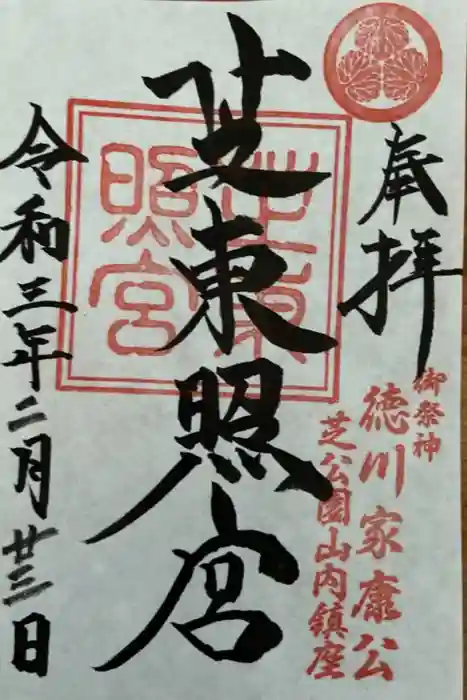 奉拝
御祭神
徳川家康公
芝公園山内鎮座
芝東照宮
芝東照宮
令和三年二月廿三日